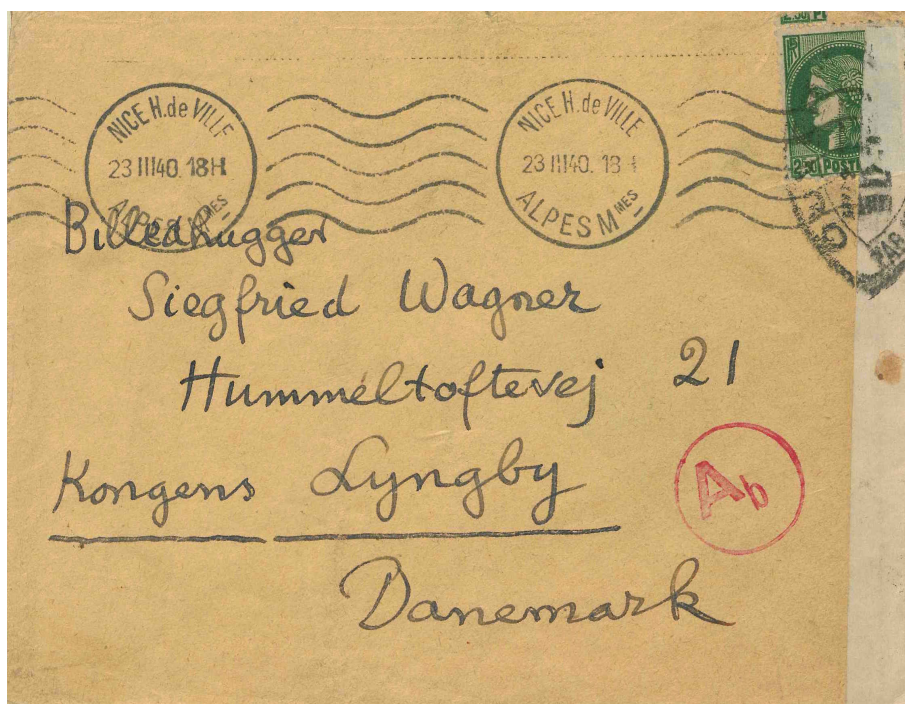 2.50 F
RF
NICE H. de VILLE
23 III 40. 18H
ALPES Mmes
NICE H. de VILLE
23 III 40. 18
ALPES Mmes
2F50 POST
Billedhugger
Siegfried Wagner
Hummeltoftevej 21
Kongens Lyngby
Danemark
Ab